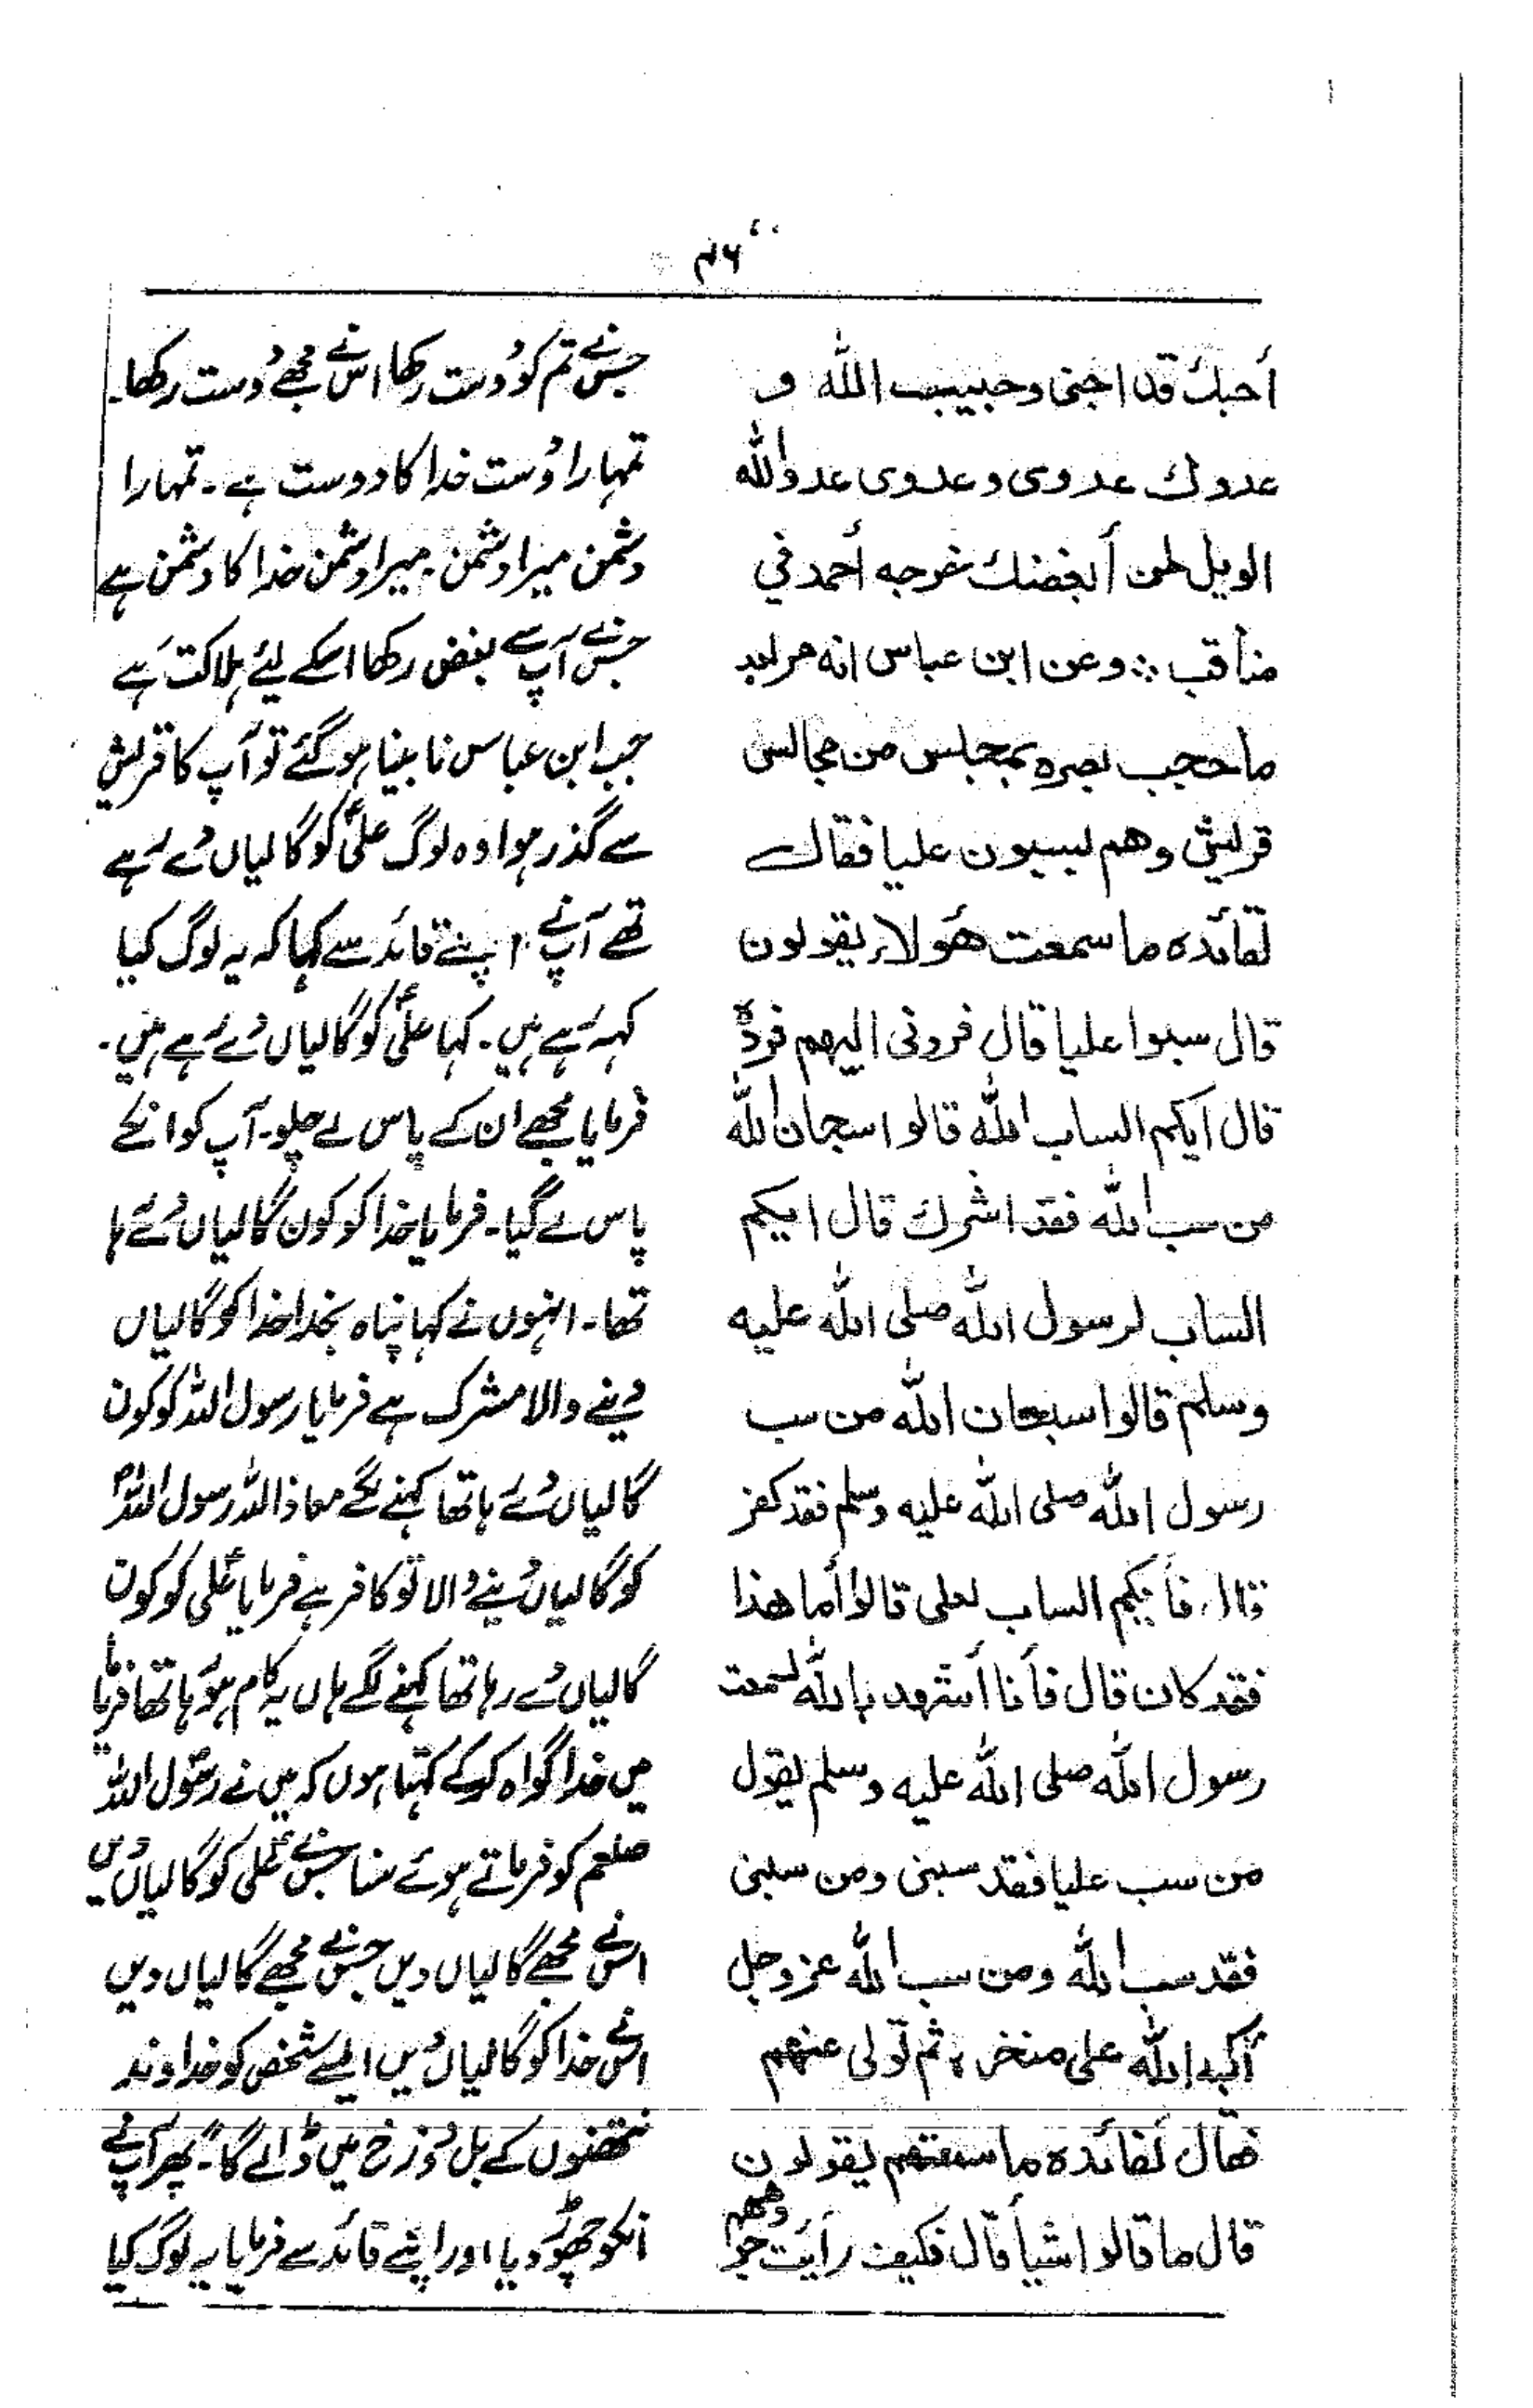 ۴۶
أحبك قد احبنى وحبيب الله و
عدوك عدوى وعدوى عدوالله
الويل لمن أبغضك خرجه أحمد في
مناقب ؞ وعن ابن عباس انه مر بعد
ما حجب بصره بمجلس من مجالس
قريش وهم يسبون عليا فقال
لقائده ما سمعت هؤلاء يقولون
قال سبوا عليا قال فردنى اليهم فرده
قال ايكم الساب الله قالوا سبحان الله
من سب الله فقد اشرك قال ايكم
الساب لرسول الله صلى الله عليه
وسلم قالوا سبحان الله من سب
رسول الله صلى الله عليه وسلم فقد كفر
قال فأيكم الساب لعلى قالوا أما هذا
فقد كان قال فأنا أشهد بالله لسمعت
رسول الله صلى الله عليه وسلم يقول
من سب عليا فقد سبنى ومن سبنى
فقد سب الله ومن سب الله عزوجل
أكبه الله على منخره ثم تولى عنهم
فقال لقائده ما سمعتهم يقولون
قال ما قالوا شيأ قال فكيف رأيت وجوههم
جس نے تم کو دوست رکھا اس نے مجھے دوست رکھا۔
تمہارا دوست خدا کا دوست ہے۔ تمہارا
دشمن میرا دشمن۔ میرا دشمن خدا کا دشمن ہے
جس نے آپ سے بغض رکھا اسکے لیئے ہلاکت ہے
جب ابن عباس نابینا ہو گئے تو آپ کا قریش
سے گذر ہوا وہ لوگ علیؑ کو گالیاں دے رہے
تھے آپ نے اپنے قائد سے کہا کہ یہ لوگ کیا
کہہ رہے ہیں۔ کہا علیؑ کو گالیاں دے رہے ہیں۔
فرمایا مجھے ان کے پاس لے چلو۔ آپ کو انکے
پاس لے گیا۔ فرمایا خدا کو کون گالیاں دے رہا
تھا۔ انہوں نے کہا پناہ بخدا خدا کو گالیاں
دینے والا مشرک ہے فرمایا رسول اللہ کو کون
گالیاں دے رہا تھا کہنے لگے معاذ اللہ رسول اللہؐ
کو گالیاں دینے والا تو کافر ہے فرمایا علیؑ کو کون
گالیاں دے رہا تھا کہنے لگے ہاں یہ کام ہو رہا تھا فرمایا
میں خدا گواہ کرکے کہتا ہوں کہ میں نے رسول اللہ
صلعم کو فرماتے ہوئے سنا جس نے علیؑ کو گالیاں دیں
اس نے مجھے گالیاں دیں جس نے مجھے گالیاں دیں
اس نے خدا کو گالیاں دیں ایسے شخص کو خداوند
نتھنوں کے بل دوزخ میں ڈالے گا۔" پھر آپ نے
انکو چھوڑ دیا اور اپنے قائد سے فرمایا یہ لوگ کیا